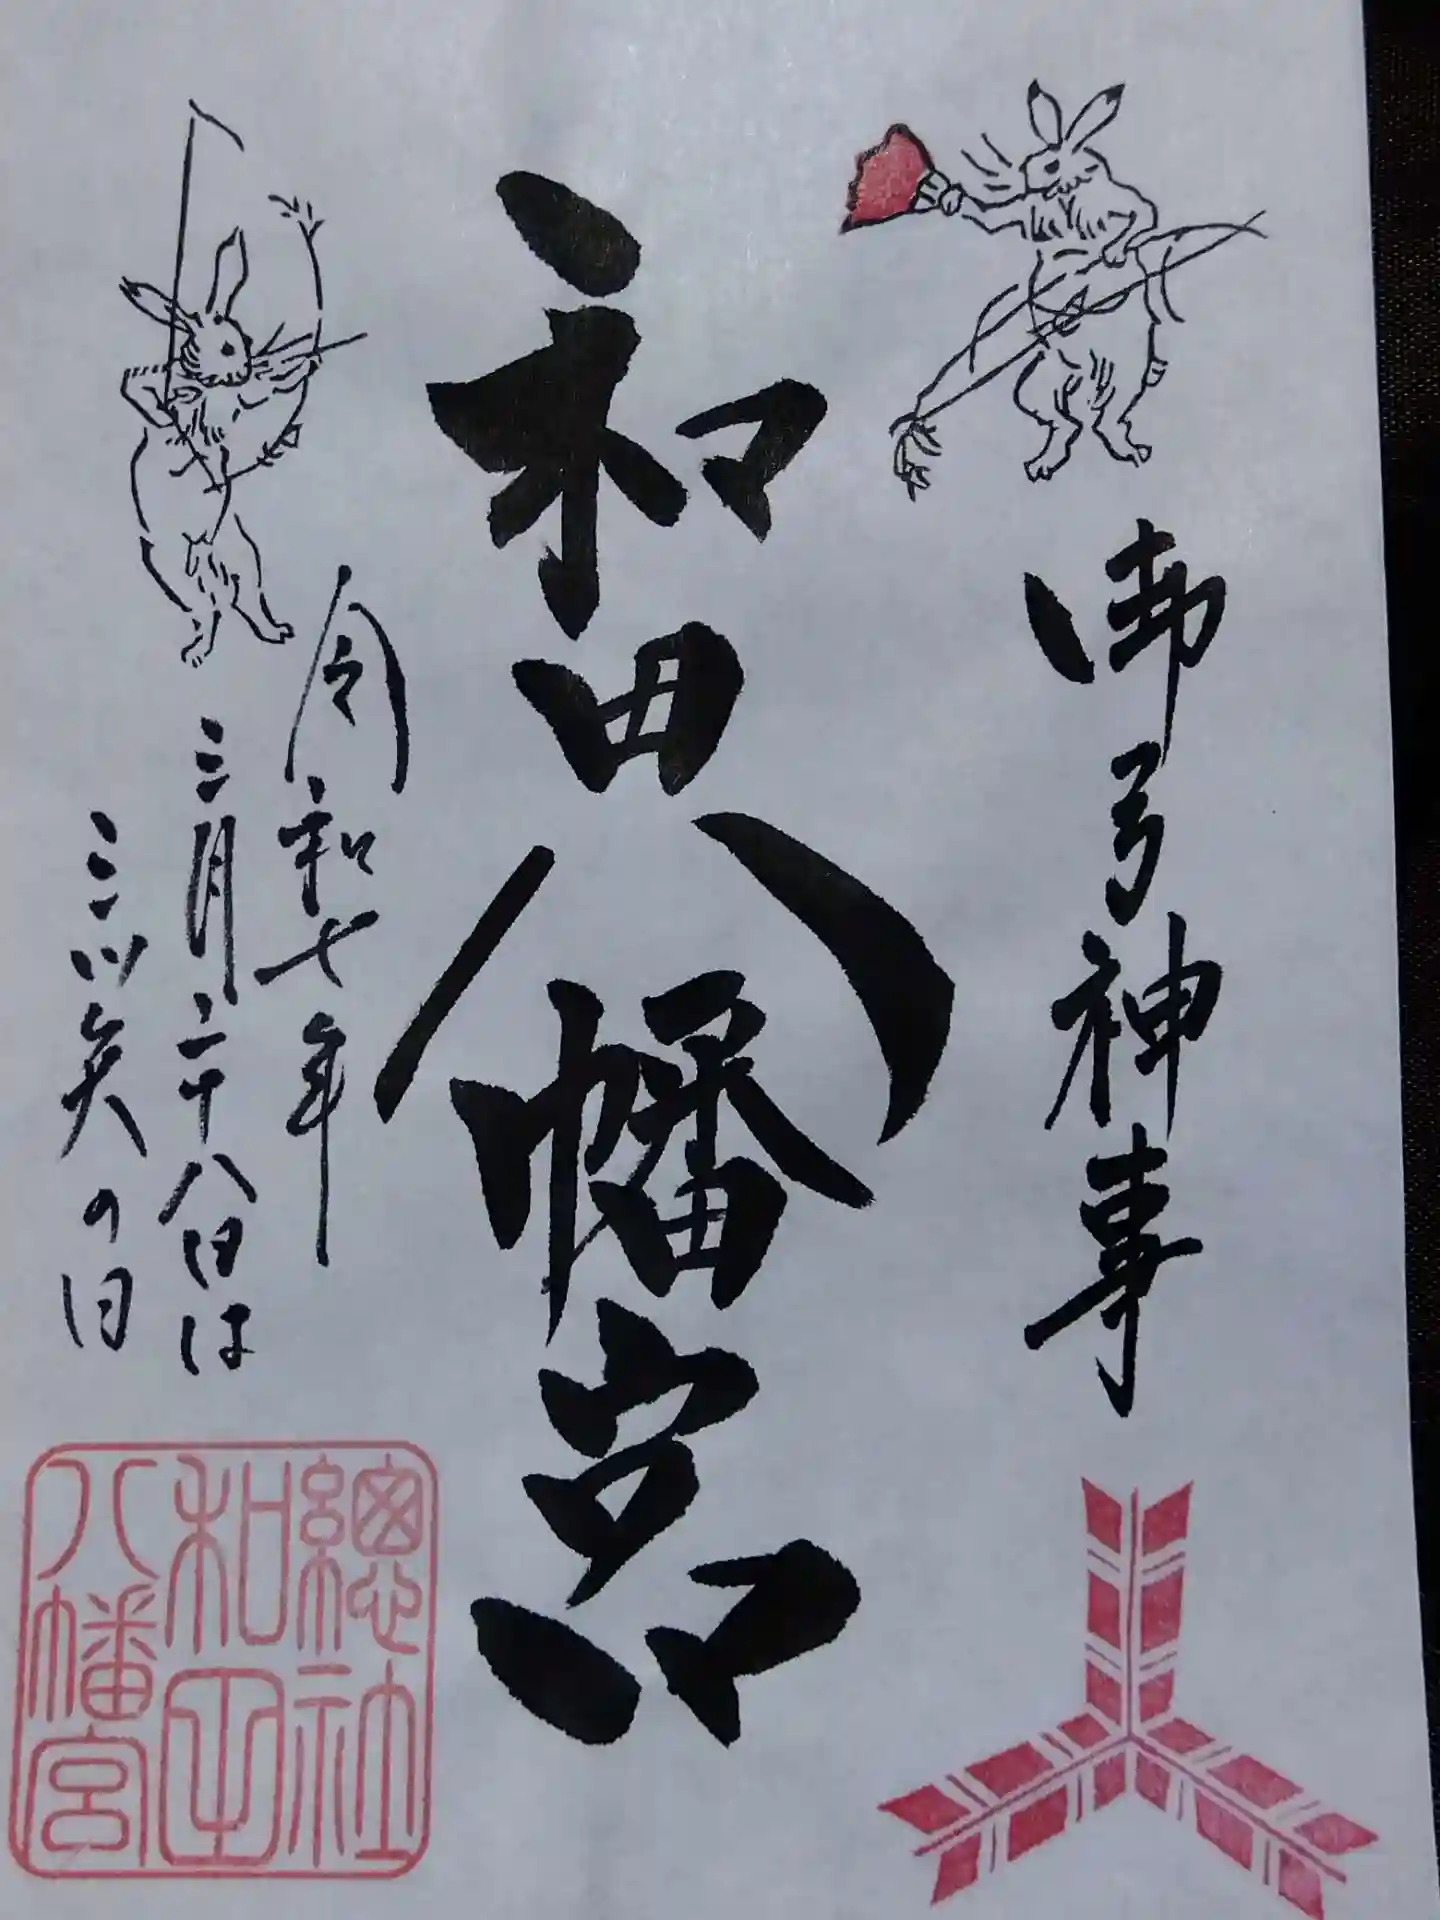 御弓神事
和田八幡宮
令和七年
三月二十八日は
三りんぼうの日
總社
和田
八幡宮